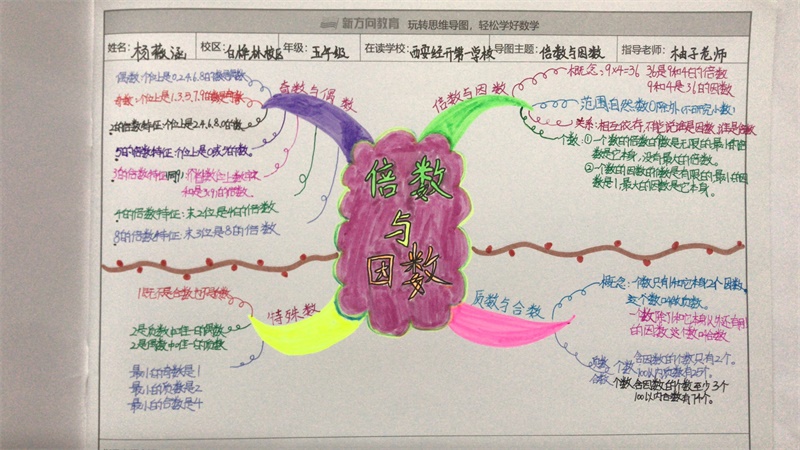 新方向教育 玩转思维导图，轻松学好数学
姓名: 杨 涵 校区: 白桦林校区 年级: 五年级 在读学校: 西安经开第一学校 导图主题: 倍数与因数 指导老师: 柚子老师
倍数
与
因数
奇数与偶数
偶数:个位上是0,2,4,6,8的
奇数:个位上是1,3,5,7,9的
2的倍数特征:个位上是2,4,6,8,0的数
5的倍数特征:个位上是0或5的数。
3的倍数特征
和是3,9的倍数。
4的倍数特征:末2位是4的倍数
8的倍数特征:末3位是8的倍数
倍数与因数
概念:9×4=36 36是9和4的倍数
9和4是36的因数
范围:自然数(0除外,不研究小数)
关系:相互依存,不能说谁是因数,谁是倍数
个数:①一个数的倍数的个数是无限的,最小的倍
数是它本身,没有最大的倍数。
②一个数的因数的个数是有限的,最小的因
数是1,最大的因数是它本身。
特殊数
1既不是合数也不是质数
2是质数中唯一的偶数
2是偶数中唯一的质数
最小的奇数是1
最小的质数是2
最小的合数是4
质数与合数
概念:一个数只有1和它本身2个因数,
这个数叫做质数。
一个数除了1和它本身以外还有别
的因数,这个数叫合数
质数 个数 含因数的个数只有2个。
100以内质数有25个。
合数 个数 含因数的个数至少3个
100以内合数有74个。